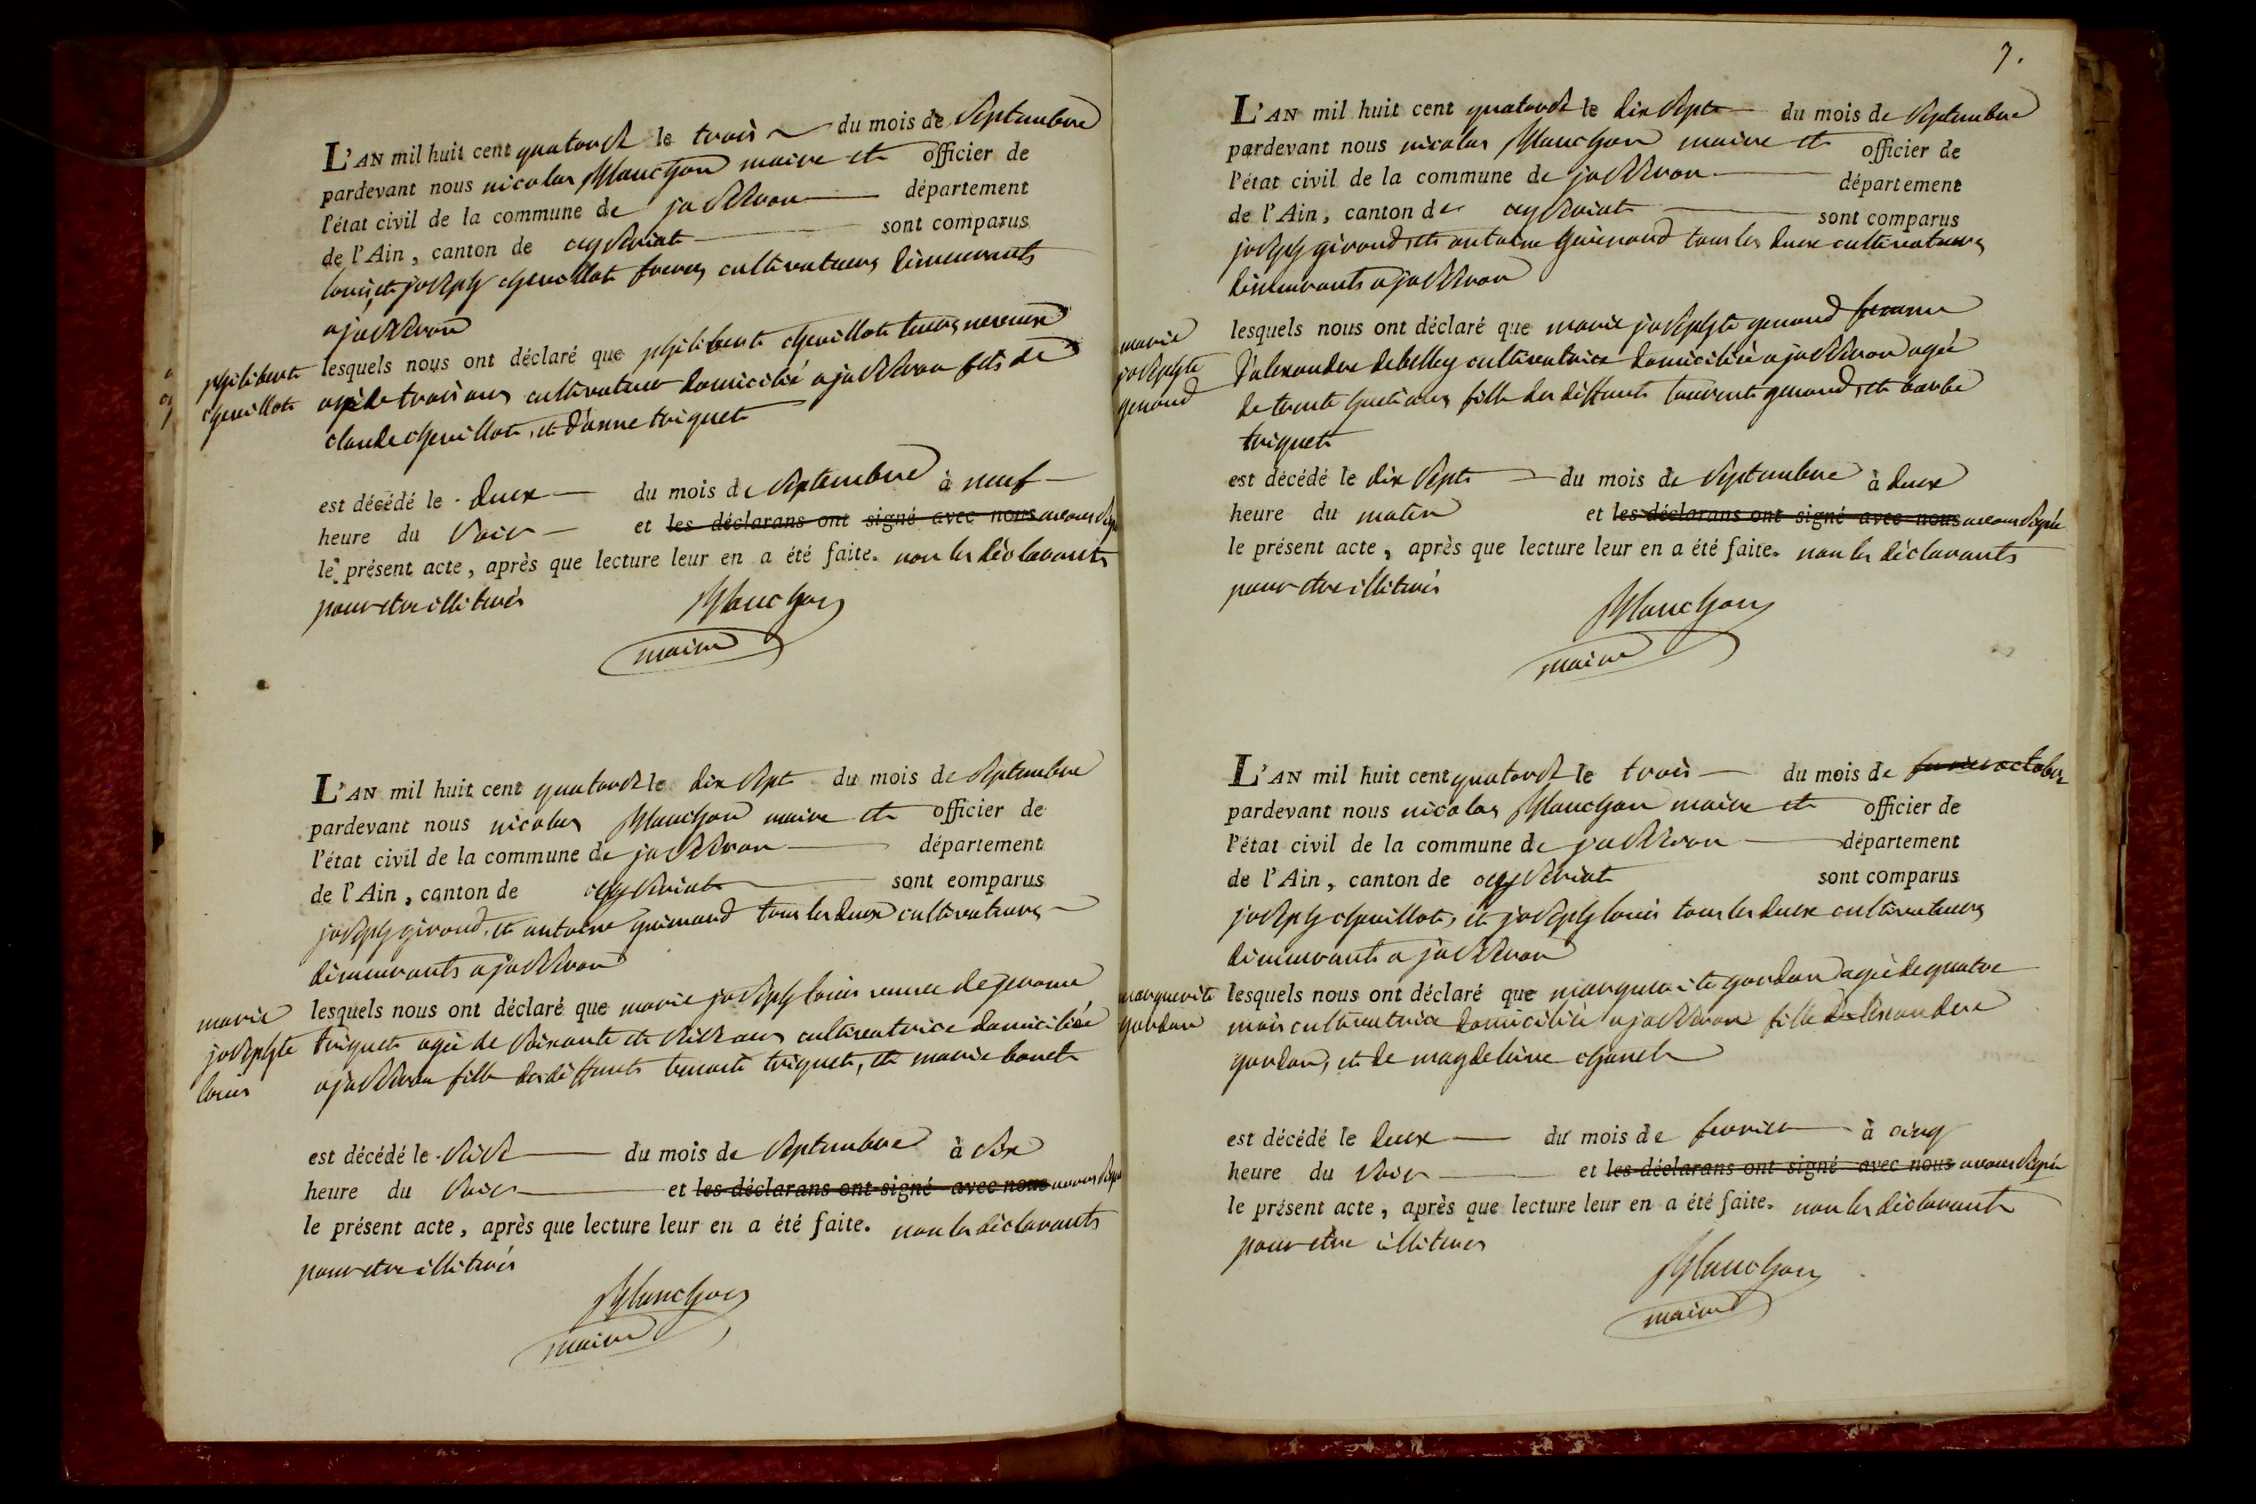 L'AN mil huit cent quatorze le trois du mois de septembre
pardevant nous nicolas planchon maire et officier de
l'état civil de la commune de jasseron département
de l'Ain, canton de ceyseriat sont comparus
louis et joseph chevillot freres cultivateurs demeurants
a jasseron
philibert
chevillot
lesquels nous ont déclaré que philibert chevillot leurs neveux
agé de trois ans cultivateur domicilié a jasseron fils de
claude chevillot, et d'anne triquet
est décédé le deux du mois de septembre à neuf
heure du soir et les déclarans ont signé avec nous avons signé
le présent acte, après que lecture leur en a été faite. non les déclarants
pour etre illiterés
planchon
maire
L'AN mil huit cent quatorze le dix sept du mois de septembre
pardevant nous nicolas planchon maire et officier de
l'état civil de la commune de jasseron département
de l'Ain, canton de ceyseriat sont comparus
joseph giroud, et antoine guinand tous les deux cultivateurs
demeurants a jasseron
marie
josephte
louis
lesquels nous ont déclaré que marie joseph louis veuve de jerome
triquet agée de soixante et seize ans cultivatrice domiciliée
a jasseron fille des deffunts triquet, et marie
est décédé le seize du mois de septembre à six
heure du soir et les déclarans ont signé avec nous avons signé
le présent acte, après que lecture leur en a été faite. non les déclarants
pour etre illiterés
planchon
maire
7.
L'AN mil huit cent quatorze le dix sept du mois de septembre
pardevant nous nicolas planchon maire et officier de
l'état civil de la commune de jasseron département
de l'Ain, canton de ceyseriat sont comparus
joseph giroud, et antoine guinand tous les deux cultivateurs
demeurants a jasseron
marie
josephte
genoud
lesquels nous ont déclaré que marie josephte genoud femme
d'alexandre debelley cultivatrice domiciliée a jasseron agée
de trente huit ans fille des deffunts laurent genoud, et barbe
triquet
est décédé le dix sept du mois de septembre à deux
heure du matin et les déclarans ont signé avec nous avons signé
le présent acte, après que lecture leur en a été faite. non les déclarants
pour etre illiterés
planchon
maire
L'AN mil huit cent quatorze le trois du mois de fevrier octobre
pardevant nous nicolas planchon maire et officier de
l'état civil de la commune de jasseron département
de l'Ain, canton de ceyseriat sont comparus
joseph chevillot, et joseph louis tous les deux cultivateurs
demeurants a jasseron
marguerite
gordon
lesquels nous ont déclaré que marguerite gordon agée de quatre
mois cultivatrice domiciliée a jasseron fille d'alexandre
gordon, et de magdeleine chanel
est décédé le deux du mois de fevrier à cinq
heure du soir et les déclarans ont signé avec nous avons signé
le présent acte, après que lecture leur en a été faite. non les déclarants
pour etre illiteres
planchon
maire